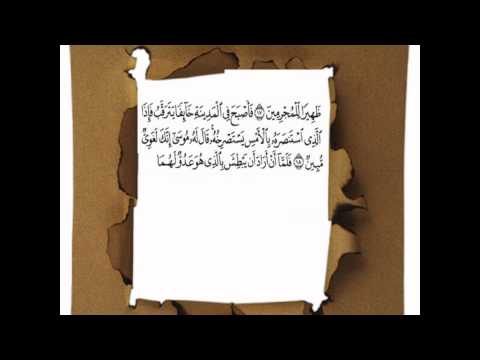 ظَهِيرًا لِّلْمُجْرِمِينَ ١٧ فَأَصْبَحَ فِي ٱلْمَدِينَةِ خَآئِفًا يَتَرَقَّبُ فَإِذَا
ٱلَّذِي ٱسْتَنصَرَهُۥ بِٱلْأَمْسِ يَسْتَصْرِخُهُۥ ۚ قَالَ لَهُۥ مُوسَىٰٓ إِنَّكَ لَغَوِيٌّ
مُّبِينٌ ١٨ فَلَمَّآ أَنْ أَرَادَ أَن يَبْطِشَ بِٱلَّذِي هُوَ عَدُوٌّ لَّهُمَا